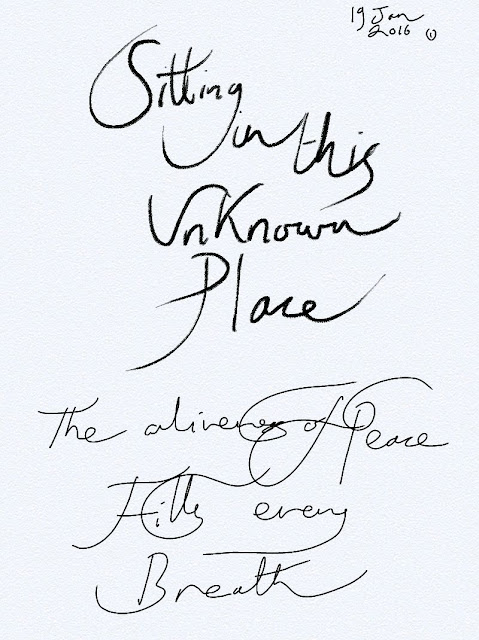 19 Jan
2016 ①
Sitting
in this
UnKnown
Place
The aliveness of Peace
Fills every
Breath